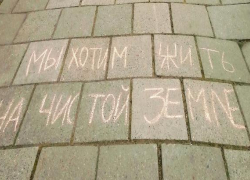 МЫ ХОТИМ ЖИТЬ
НА ЧИСТОЙ ЗЕМЛЕ